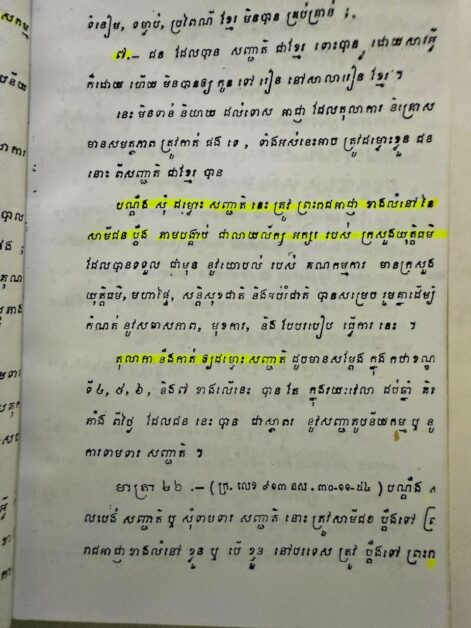 ទំនៀម, ទម្លាប់, ប្រពៃណី ខ្មែរ មិនបាន គ្រប់គ្រាន់ ;
៧.— ជន ដែលបាន សញ្ជាតិ ជាខ្មែរ ទោះបាន ដោយសារអ្វី
ក៏ដោយ ហើយ មិនបានឲ្យ កូន ទៅ រៀន នៅសាលារៀន ខ្មែរ ។
នេះ មិនទាន់ និយាយ ដល់ទោស អាជ្ញា ដែលតុលាការ និគ្រោស
មានសមត្ថភាព ត្រូវកាត់ ផង ទេ , ទាំងអស់នេះអាច ត្រូវដម្លោះខ្លួន ជន
នោះ ពីសញ្ជាតិ ជាខ្មែរ បាន
បណ្ដឹង សុំ ដម្លោះ សញ្ជាតិ នេះ ត្រូវ ព្រះរាជអាជ្ញា ខាងលំនៅ នៃ
សាមីជន ប្ដឹង តាមបង្គាប់ ជាលាយលក្ខ អក្សរ របស់ ក្រសួងយុត្តិធម៌
ដែលបានទទួល ជាមុន នូវយោបល់ របស់ គណកម្មការ មានក្រសួង
យុត្តិធម៌, មហាផ្ទៃ, សន្តិសុខជាតិ និងអប់រំជាតិ បានសម្រេច រួមគ្នាដើម្បី
កំណត់ នូវសមាសភាព, មុខការ, និង បែបរបៀប ធ្វើការ នេះ ។
តុលាកា នឹងកាត់ ឲ្យដម្លោះ សញ្ជាតិ ដូចមានសម្ដែង ក្នុង កថាខណ្ឌ
ទី៤, ៥, ៦, និង៧ ខាងលើនេះ បាន តែ ក្នុងរយៈវេលា ដប់ឆ្នាំ គិត
តាំង ពីថ្ងៃ ដែលជន នេះ បាន ជាស្ថាពរ នូវសញ្ជាតូបនីយកម្ម ឬ នូ
ការទាមទារ សញ្ជាតិ ។
មាត្រា ២៦ .— ( ក្រ. លេខ ៩១៣ នស . ៣០-១១-៥៤ ) បណ្ដឹង
លបង់ សញ្ជាតិ ឬ សុំទាមទារ សញ្ជាតិ នោះ ត្រូវសាមីជន ប្ដឹងទៅ
រាជអាជ្ញាខាងលំនៅ ខ្លួន ឬ បើ ខ្លួន នៅបរទេស ត្រូវ ប្ដឹងទៅ ព្រះរា